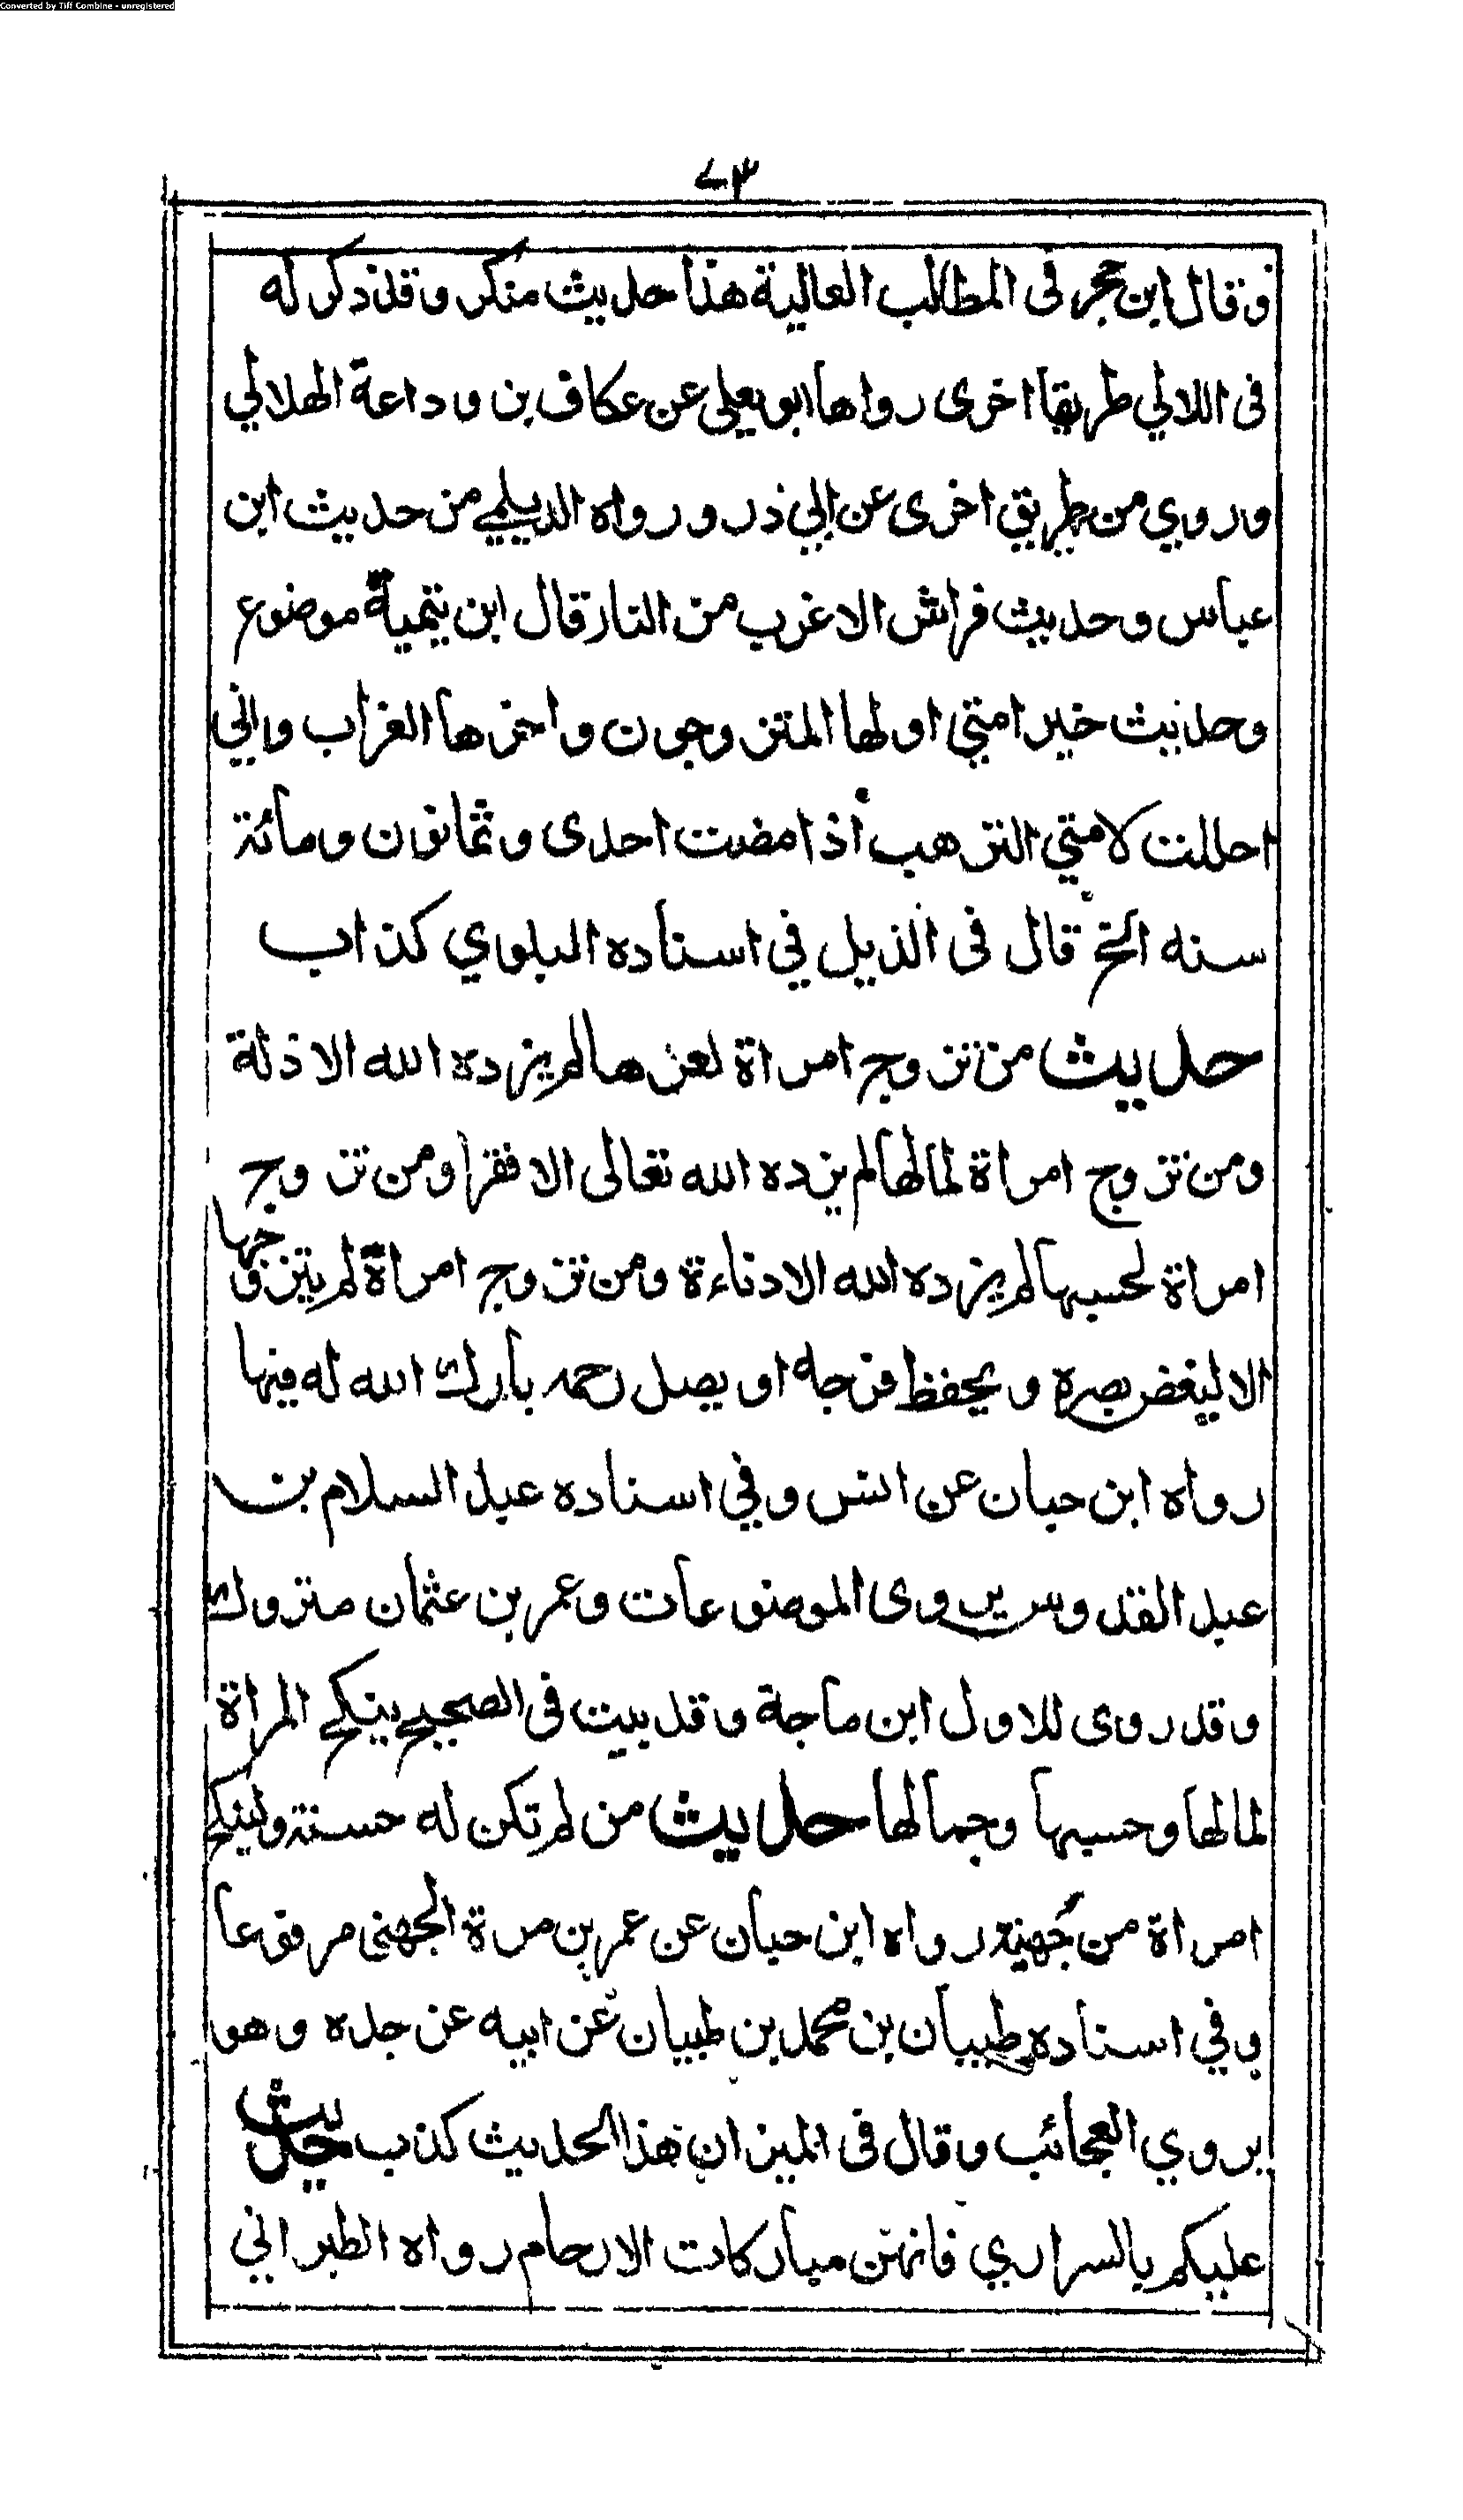 Converted by Tiff Combine - unregistered
٧٣
وقال ابن حجر فى المطالب العالية هذا حديث منكر وقد ذكر له
فى اللالي طريقا اخرى رواها ابو يعلى عن عكاف بن وداعة الهلالي
وروي من طريق اخرى عن ابي ذر ورواه الديلمي من حديث ابن
عباس وحديث فراش الاعزب من النار قال ابن تيمية موضوع
وحديث خير امتي اولها المتزوجون واخرها العزاب واني
احللت لامتي الترهب أذا مضت احدى وثمانون ومائة
سنه الخ قال فى الذيل في اسناده البلوي كذاب
حديث من تزوج امراة لعزها لم يزده الله الا ذلة
ومن تزوج امراة لمالها لم يزده الله تعالى الا فقرا ومن تزوج
امراة لحسبها لم يزده الله الا دناءة ومن تزوج امراة لم يتزوجها
الا ليغض بصره ويحفظ فرجه او يصل رحمه بارك الله له فيها
رواه ابن حبان عن انس وفي اسناده عبد السلام بن
عبد القدوس يروى الموضوعات وعمر بن عثمان متروك
وقد روى للاول ابن ماجة وقد بيت فى الصحيح ينكح المراة
لمالها وحسبها وجمالها حديث من لم تكن له حسنة ولينكح
امراة من جهينة رواه ابن حبان عن عمر بن مرة الجهنى مرفوعا
وفي اسناده طبيان بن محمد بن طبيان عن ابيه عن جده وهو
يروي العجائب وقال فى الميزان هذا الحديث كذب حديث
عليكم بالسراري فانهن مباركات الارحام رواه الطبراني